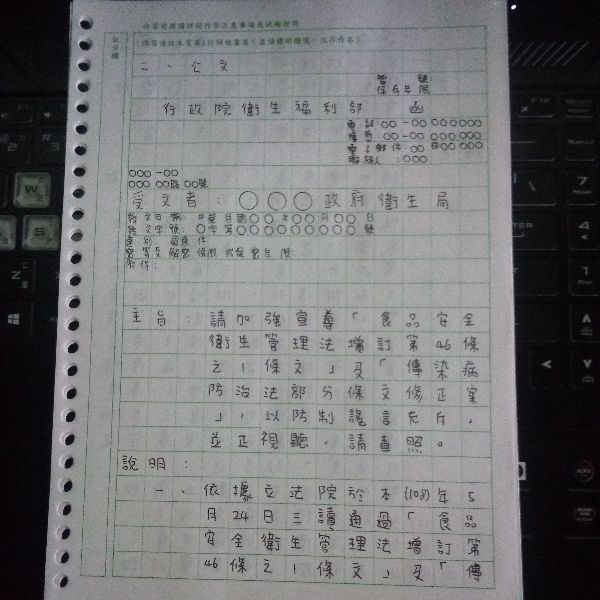 二、公文
檔 號：
保存年限
行政院衛生福利部 函
電話：○○－○○ ○○○○○○
傳真：○○－○○ ○○○○○○
電子郵件：○○ @○○○ ○○○
聯絡人：○○○
○○○－○○
○○○ ○○路 ○○號
受文者：○○○政府衛生局
發文日期：中華民國○○年○○月○○日
發文字號：○字第○○○○○○○○○○號
速別：最速件
密等及解密條件或保密年限
附件：
主旨：請加強宣導「食品安全
衛生管理法增訂第46條
之1條文」及「傳染病
防治法部分條文修正案
」，以防制謠言充斥，
並正視聽，請查照。
說明：
一、依據立法院於本(108)年5
月24日三讀通過「食品
安全衛生管理法增訂第
46條之1條文」及「傳